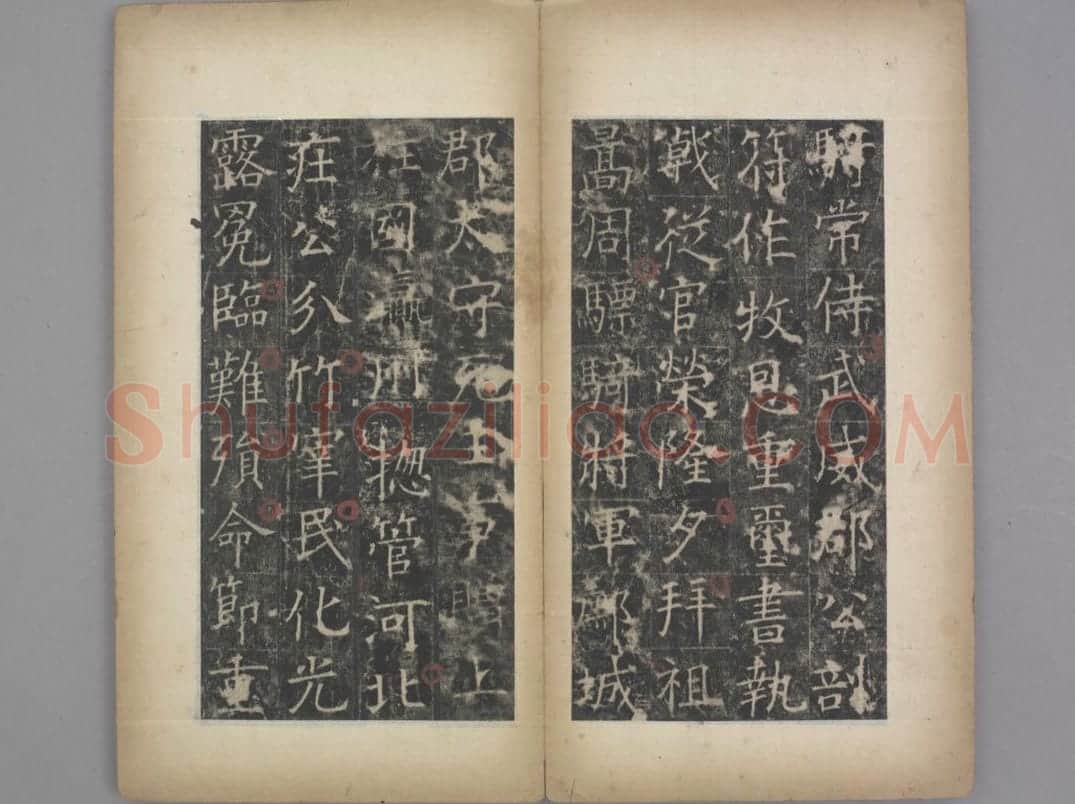 騎常侍武威郡公剖
符作牧恩重璽書執
戟從官榮隆夕拜祖
暠周驃騎將軍鄜城
郡太守上
柱國瀛州揔管河北
莊公分竹宰民化光
露冕臨難殞命節重
Shufaziliao.COM